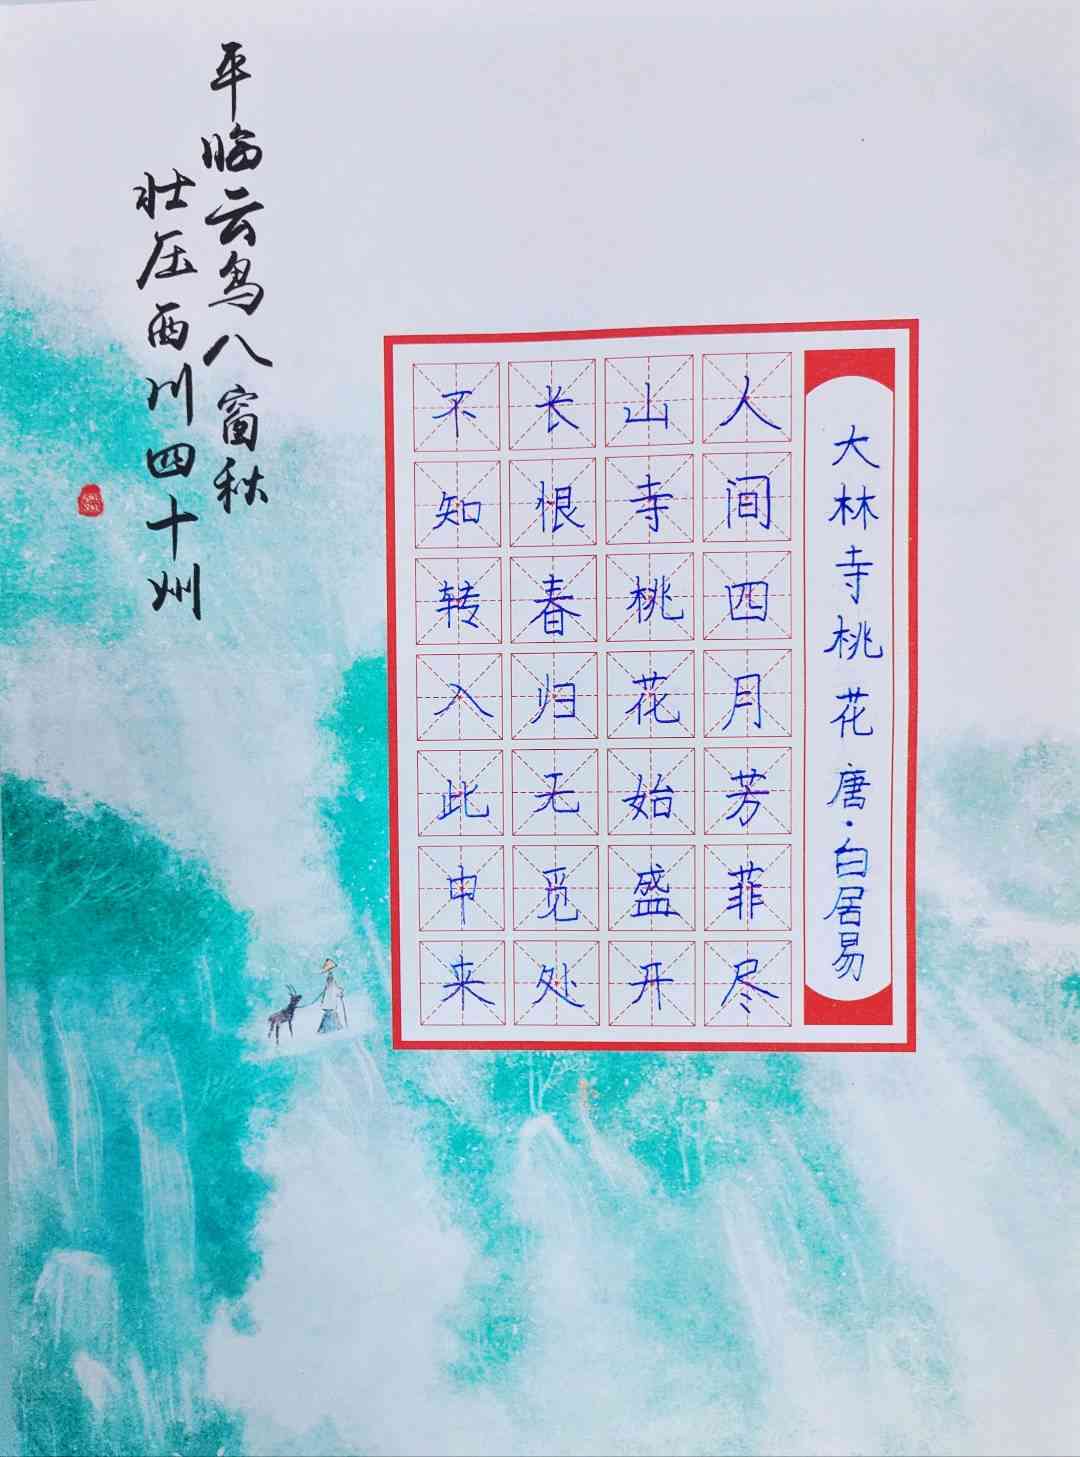 大林寺桃花 唐·白居易
人间四月芳菲尽
山寺桃花始盛开
长恨春归无觅处
不知转入此中来
平临云鸟八窗秋
壮压西川四十州